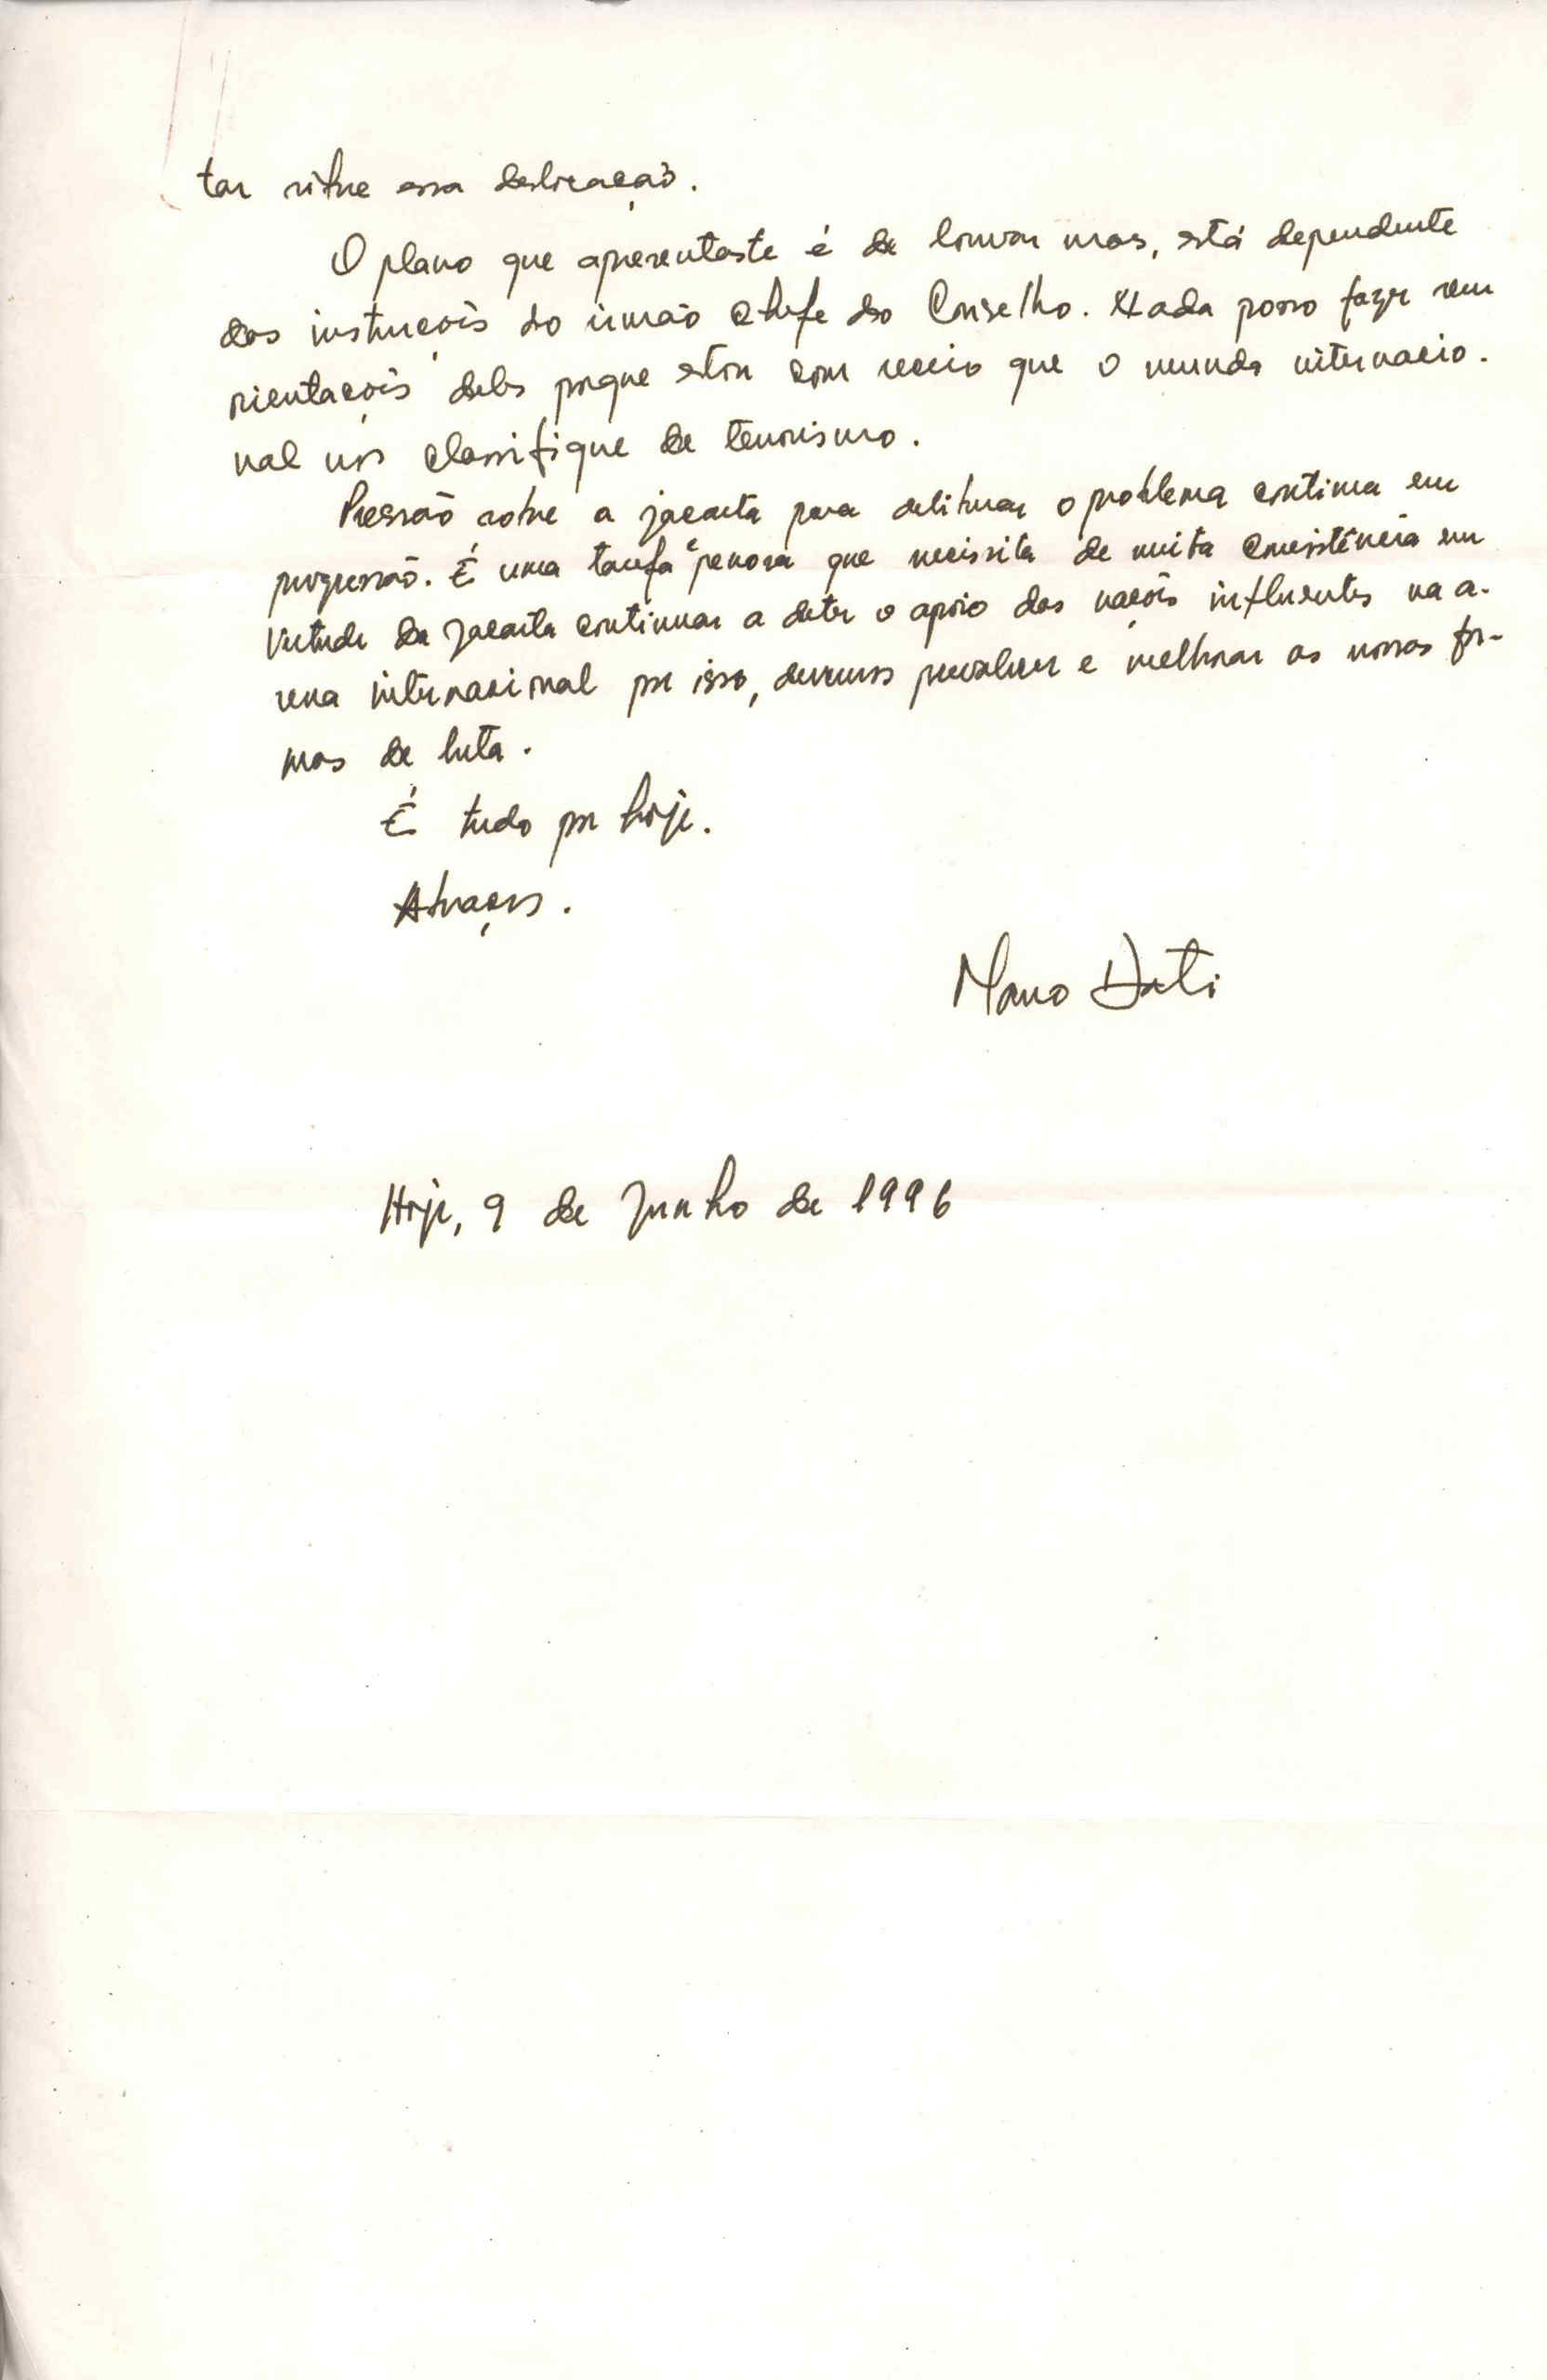 tar sobre essa deslocação.
O plano que apresentaste é de louvar mas, está dependente
das instruçõis do irmão chefe do Conselho. Nada posso fazer sem
orientaçõis deles porque estou com receio que o mundo internacio-
nal nos classifique de terrorismo.
Pressão sobre a jacarta para o problema continua em
progressão. É uma tarefa penosa que necissita de muita em
virtude de Jacarta continuar a deter o apoio das naçõis influentes na a-
rena internacional por isso, devemos prevalecer e melhorar as nossas for-
mas de luta.
É tudo por hoje.
Abraços.
Mano Dati
Hoje, 9 de Junho de 1996